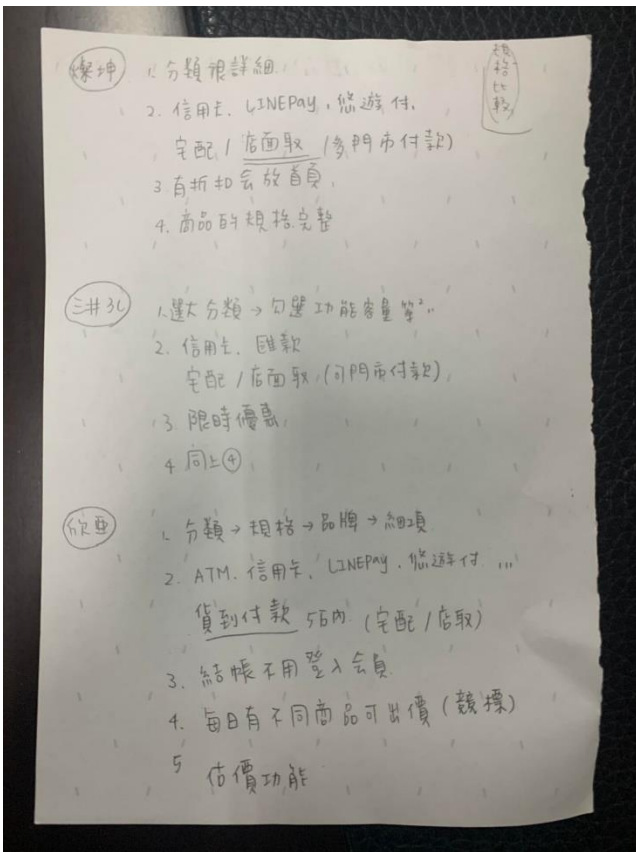 規格比較
燦坤 1. 分類很詳細
2. 信用卡、LINEPay、悠遊付、
宅配/店面取 (多門市付款)
3 有折扣会放首頁
4. 商品的規格完整
三井3C 1. 選大分類→勾選功能容量等²..
2. 信用卡、匯款
宅配/店面取 (可門市付款)
3 限時優惠
4 同上④
欣亞 1. 分類→規格→品牌→細項
2. ATM、信用卡、LINEPay、悠遊付 ...
貨到付款 5石內 (宅配/店取)
3. 結帳不用登入会員
4. 每日有不同商品可出價 (競標)
5 估價功能